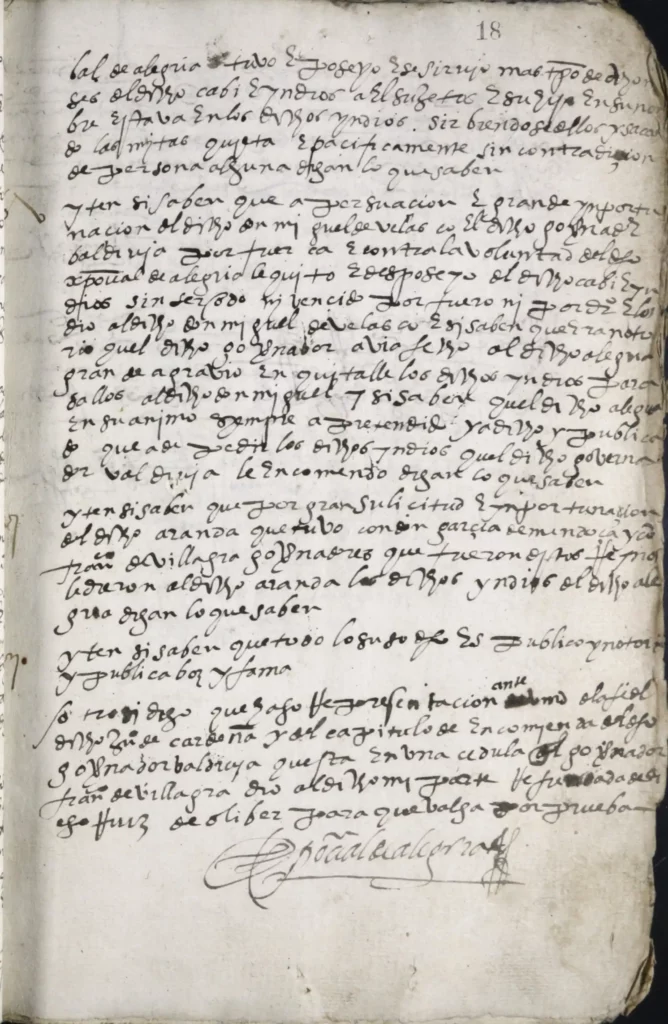 18
bal de alegria tuvo E poseyo E se sirvio mas tpo de
ses del dho cabi E yndios a El sujetos E su hijo En su nom
bre Estava En los dhos yndios sirbiendose dellos y saca
do las mitas quieta E pacificamente sin contradicion
de persona alguna digan lo que saben
yten si saben que a persuacion E grande ynportu
nacion del dho don miguel de velas co El dho governador
baldivia por fuer ca E contra la voluntad del dho
xpoual de alegria le quito E desposeyo del dho cabi E yn
dios sin ser oydo ni vencido por fuero ni por dro E los
dio al dho don mi guel de velas co E si saben que Era noto
rio quel dho governador avia fecho al dho alegria
gran de agravio En quitalle los dhos yndios para
dallos al dho don miguel y si saben quel dho alegria
En su animo sienpre a pretendido y a dho y publica
do que a de pedir los dhos yndios quel dho governa
dor valdivia le Encomendo digan lo que saben
yten si saben que por gran sulicitud E ynportunacion
del dho aranda que tuvo con don garcia de mendoça y con
franco de villagra governadores que fueron destos Reynos
le dieron al dho aranda los dhos yndios del dho ale
gria digan lo que saben
yten si saben que todo lo suso dho Es publico y notorio
y publica boz y fama
otrosi digo que hago Representacion ante vmd de la fee del
dho juo de cardeña y del capitulo de Encomienda del dho
governador valdivia questa En una cedula quel governador
franco de villagra dio al dho mi parte Refrendada de di
ego Ruiz de oliber para que valga por prueba
xpoual de alegria